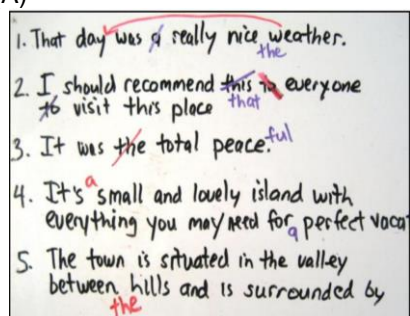 A)
1. That day was a really nice weather.
the
2. I should recommend this to everyone
to visit this place that
3. It was the total peace.ful
a
4. It's small and lovely island with
everything you may need for a perfect vocat
5. The town is situated in the valley
between hills and is surrounded by
the